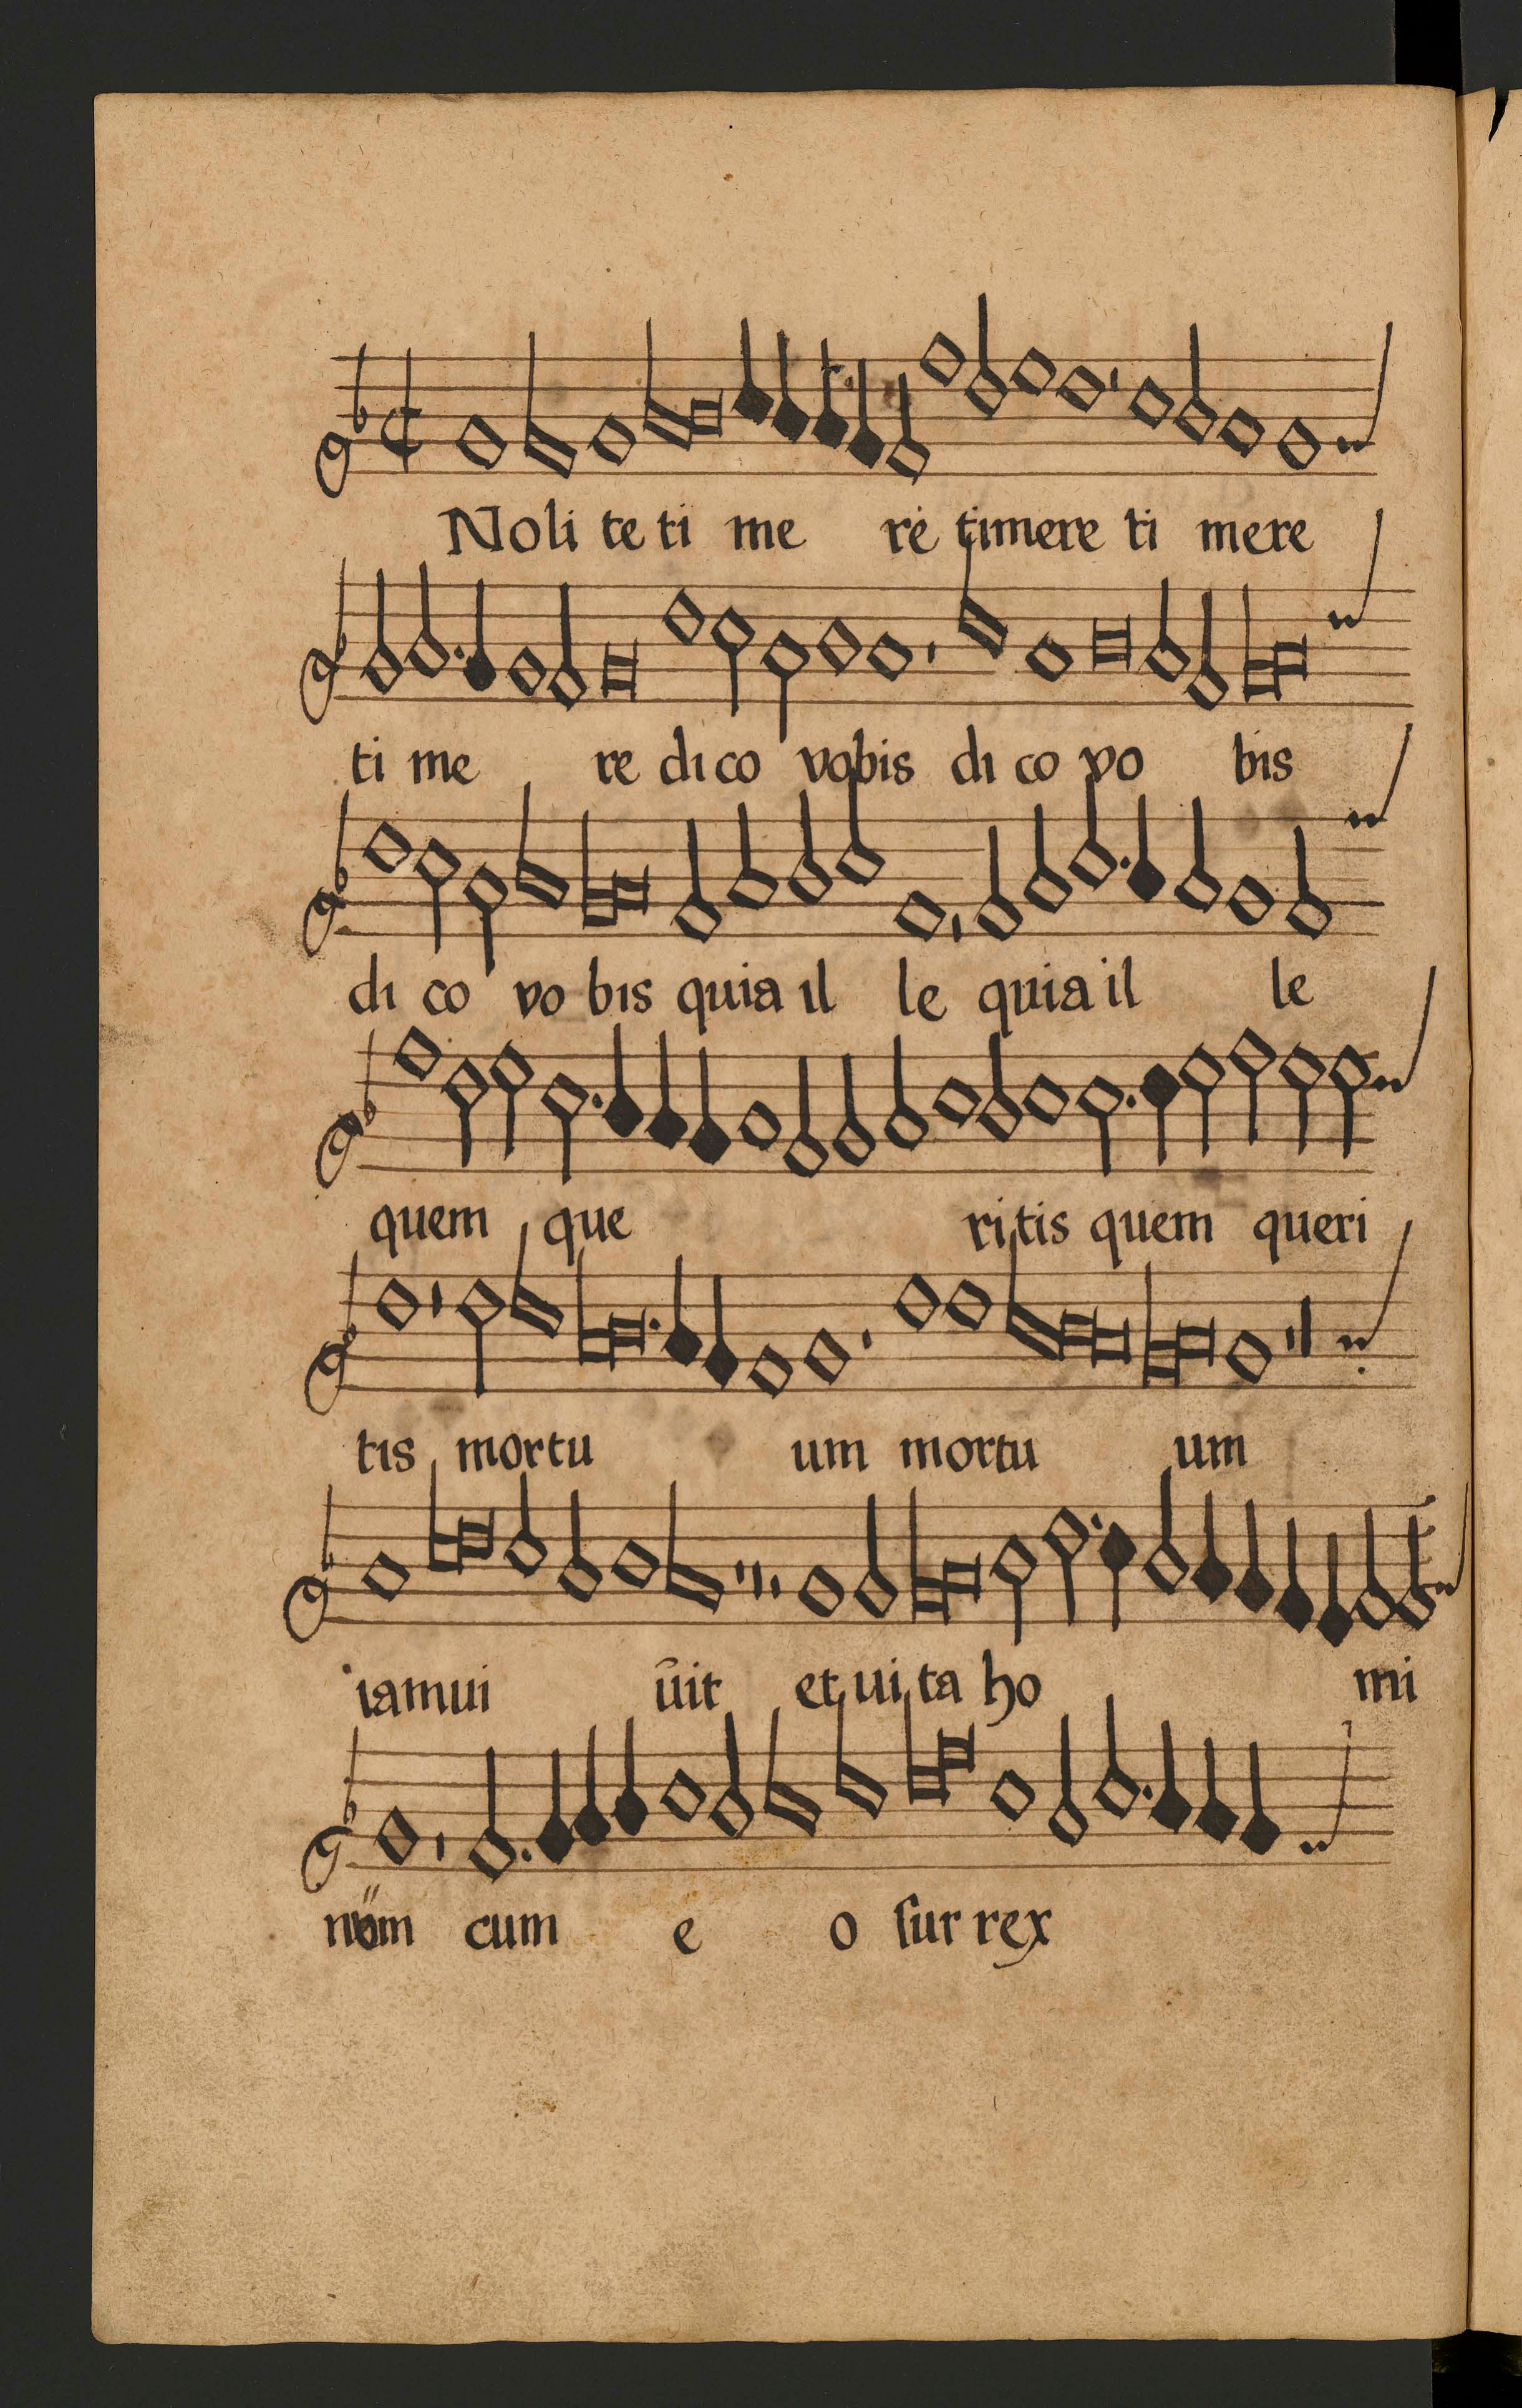 Noli te ti me re timere ti mere
ti me re dico vobis di co vo bis
di co vo bis quia il le quia il le
quem que ritis quem queri
tis mortu um mortu um
iamui uit et ui ta ho mi
cum e o ſur rex